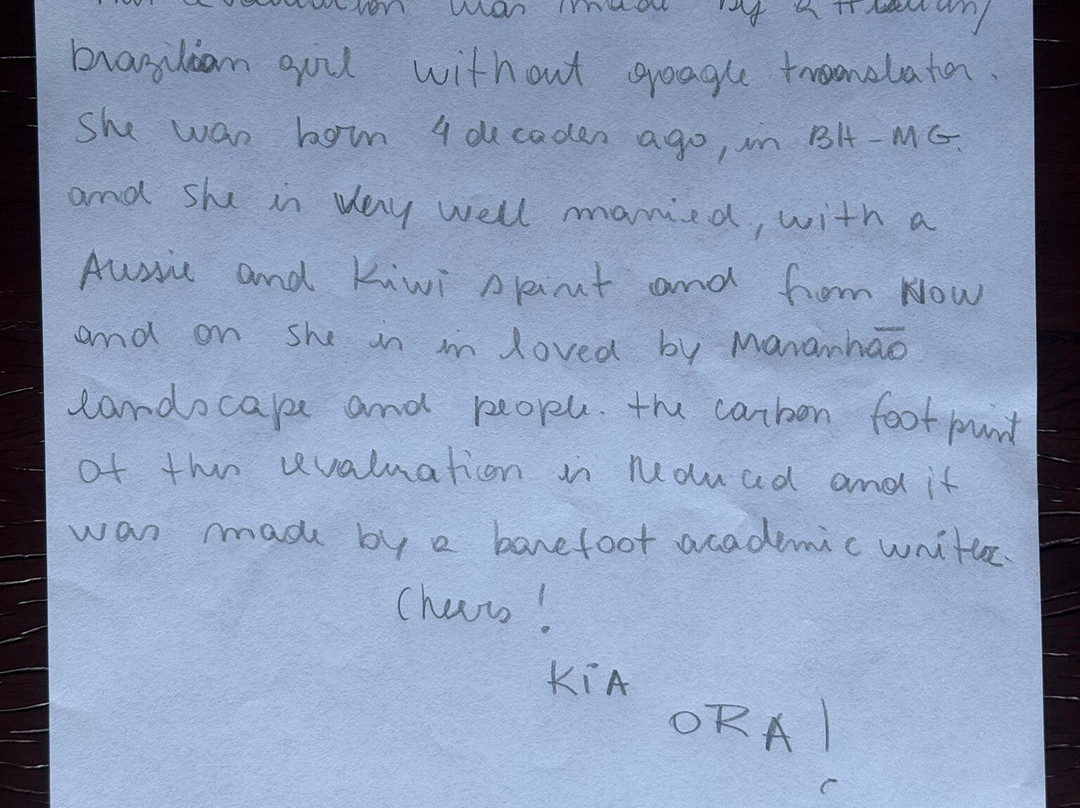 evaluation was made by a Italian/
brazilian girl without google translator.
She was born 4 decades ago, in BH-MG.
and she is very well married, with a
Aussie and Kiwi spirit and from NOW
and on she is in loved by Maranhão
landscape and people. the carbon footprint
of this evaluation is reduced and it
was made by a barefoot academic writer.
Cheers!
KiA
ORA!